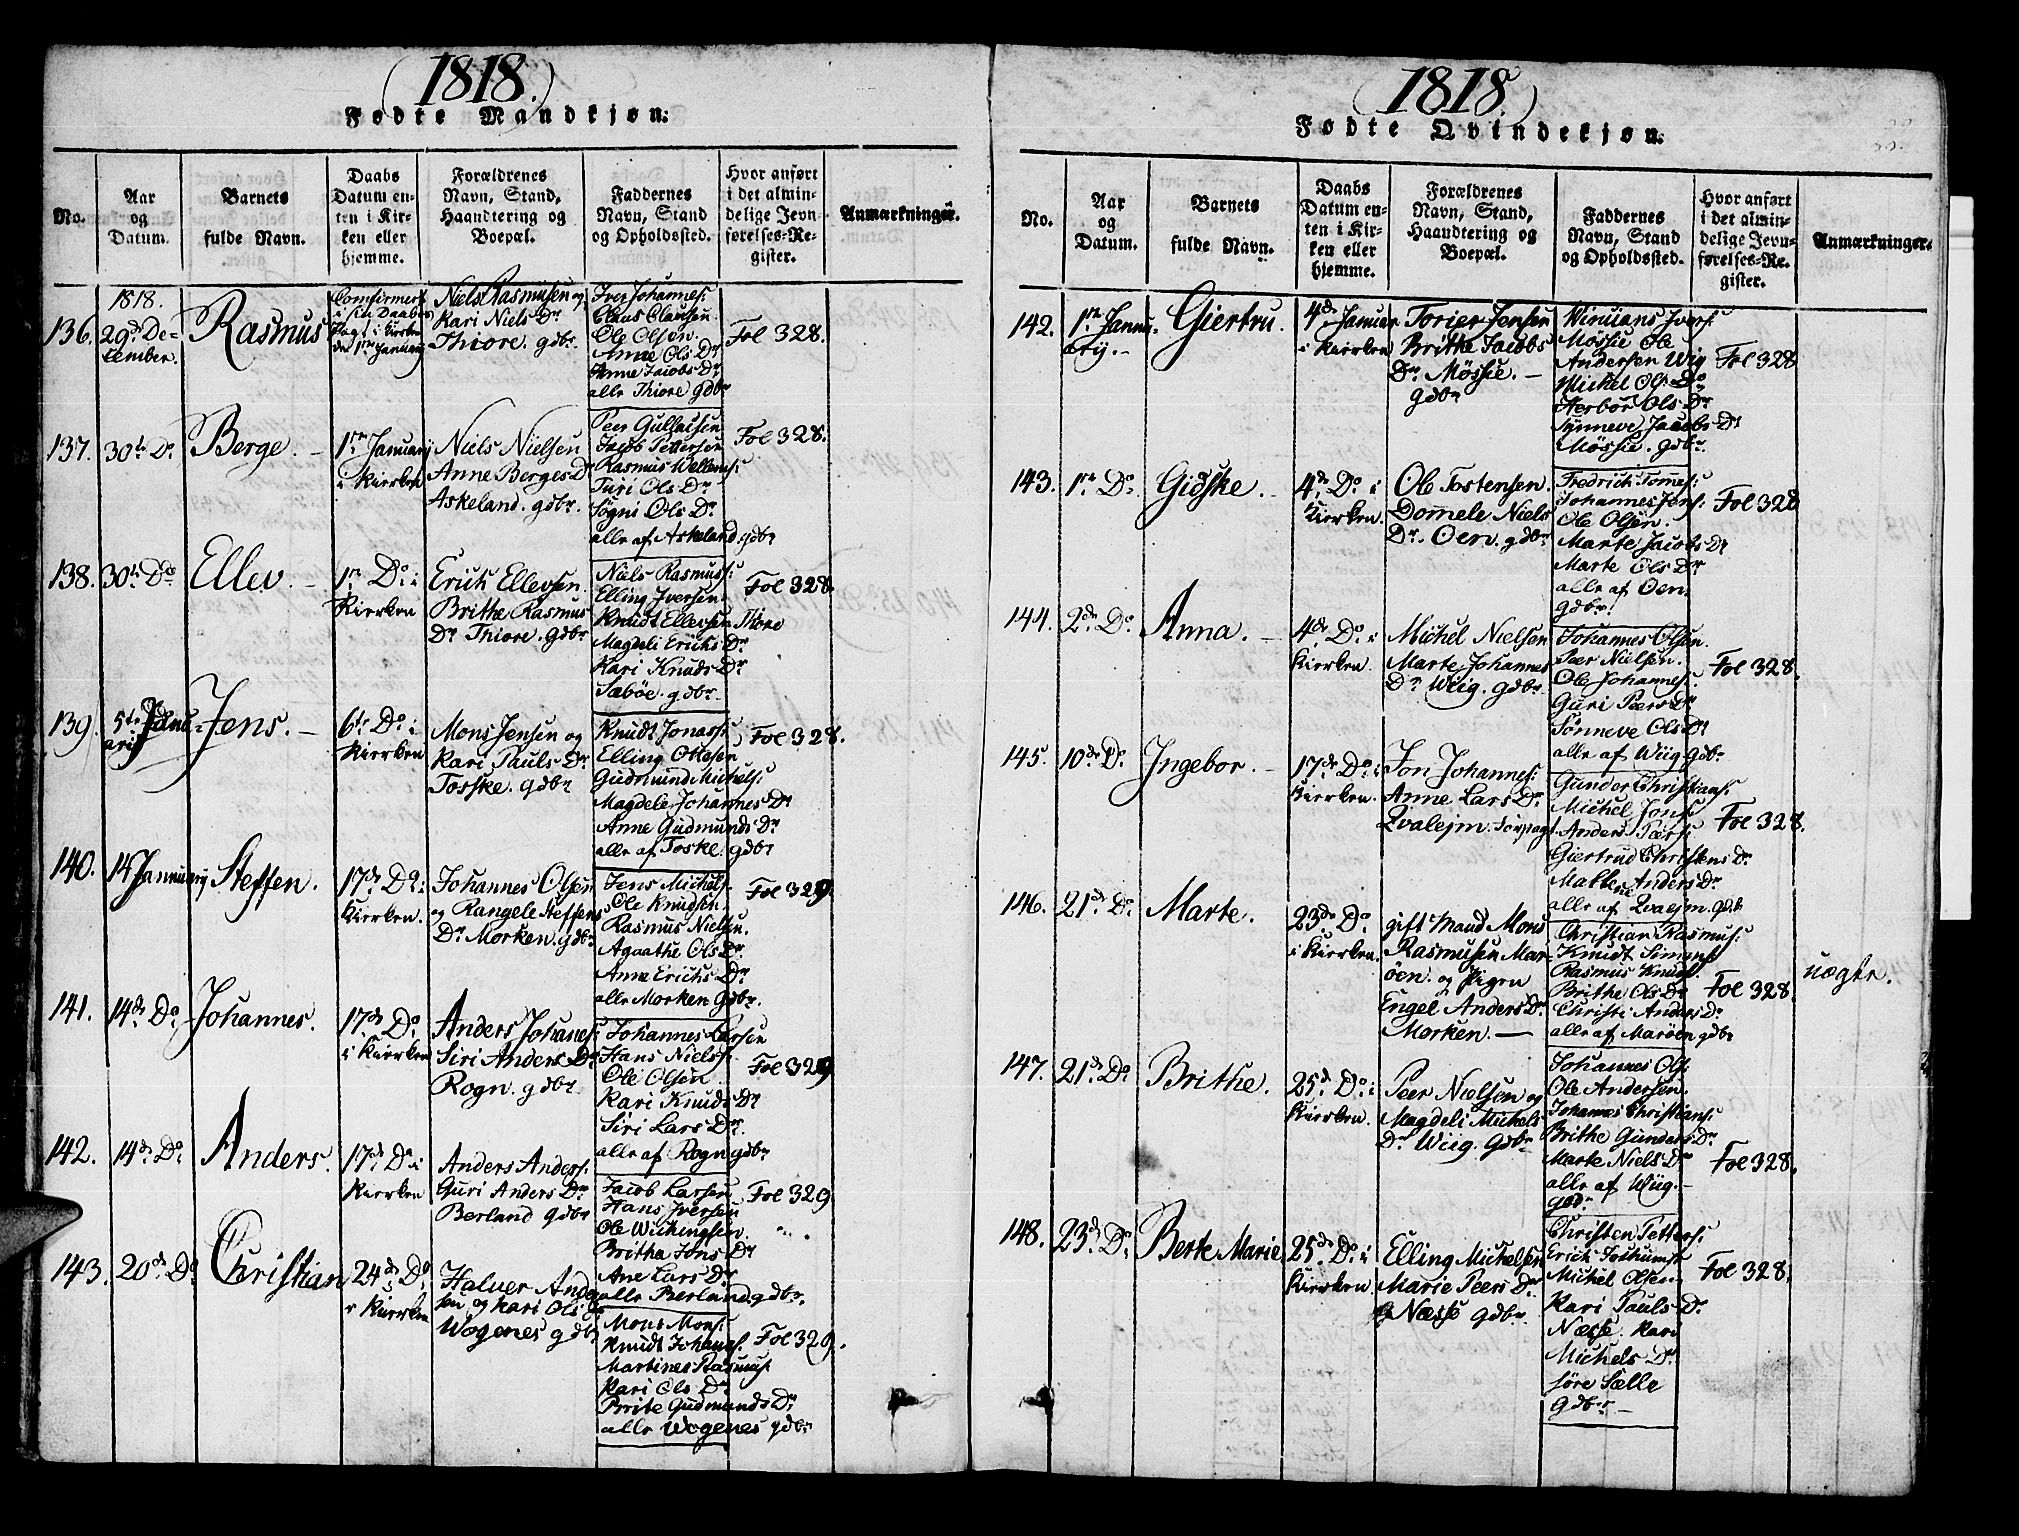 (1818.)
Fødte Mandkjøn.
No.
Aar
og
Datum.
Barnets
fulde Navn.
Daabs
Datum en-
ten i Kir-
ken eller
hjemme.
Forældrenes
Navn, Stand,
Haandtering og
Boepæl.
Faddernes
Navn, Stand
og Opholdssted.
Hvor anført
i det almin-
delige Jevn-
førelses-Re-
gister.
Anmærkninger.
136.
1818.
29de De-
cember.
Rasmus
Comfirmert
i sin Daabs
i Kierken
den 1re January
Niels Rasmusen og
Kari Niels Dr
Thiore. gdbr.
Iver Johannes:
Claus Clausen.
Ole Olsen.
Anne Ols Dr
Anne Jacobs Dr
alle Thiore gdbr
Fol 328.
137.
30te Do.
Berge. —
1re January
i Kierken
Niels Nielsen
Anne Berges Dr
Askeland. gdbr.
Peer Gullacsen
Jacob Pettersen
Rasmus Wellems:
Turi Ols Dr
Sogni Ols Dr
alle af Askeland gdbr
Fol 328.
138.
30te Do.
Ellev. —
1re Do. i
Kierken
Erich Ellevsen
Brithe Rasmus
Dr Thiore. gdbr
Niels Rasmus:
Elling Iversen.
Knudt Ellevsen Thore
Magdeli Erichs Dr
Kari Knuds Dr
Sæbøe. gdbr.
Fol 328.
139.
5te Janu-
arij
Jens. —
6te Do. i
Kierken
Mons Jensen og
Kari Pauls Dr
Toske. gdbr
Knudt Jonas:
Elling Ottesen
Gudmund Michels:
Magdele Johannes Dr
Anne Gudmunds Dr
alle af Toske. gdbr
Fol 328.
140.
14 January
Steffen.
17de Do. i
Kierken.
Johannes Olsen
og Rangele Steffens
Dr Morken. gdbr
Jens Michels.
Ole Knudsen.
Rasmus Nielsen.
Agaathe Ols Dr
Anne Erichs Dr
alle Morken gdbr.
Fol 329
141.
14de Do.
Johannes.
17de Do.
i Kierken
Anders Johanes:
Siri Anders Dr
Rogn. gdbr
Johannes Larsen
Hans Niels:
Ole Olsen.
Kari Knuds Dr
Siri Lars Dr.
alle af Rogn gdbr
Fol 329
142.
14de Do.
Anders.
17de Do. i
Kierken
Anders Anders:
Guri Anders Dr
Berland gdbr
Jacob Larsen
Hans Iversen
Ole Wichingsen.
Britha Jons Dr
Ane Lars Dr
alle Berland gdbr.
Fol 329.
143.
20de Do
Christian
24de Do
i Kierken
Halver Ander-
sen og Kari Ols Dr
Wogenes gdbr
Mons Mons:
Knudt Johans:
Martines Rasmus:
Kari Ols Dr
Brite Gudmunds Dr
alle Wogenes gdbr
Fol 329.
(1818.)
Fødte Qvindekjøn.
No.
Aar
og
Datum.
Barnets
fulde Navn.
Daabs
Datum en-
ten i Kir-
ken eller
hjemme.
Forældrenes
Navn, Stand,
Haandtering og
Boepæl.
Faddernes
Navn, Stand
og Opholdssted.
Hvor anført
i det almin-
delige Jevn-
førelses-Re-
gister.
Anmærkninger.
142.
1re Janu-
arij. —
Giertru.
4de Januar
i Kierken
Torier Jensen
Brithe Jacobs
Dr Møssie. —
gdbr
Ivers:
Møssie Ole
Andersen Wiig
Michel Ols Do
Herbor Ols Dr
Synneve Jacobs Dr
Møssie. gdbr.
Fol 328
143.
1re Do.
Gidske. —
4de Do. i
Kierken.
Ole Tostensen
Domele Niels
Dr. Oen. gdbr
Fredrich Tomes:
Johannes Jens:
Ole Olsen.
Marte Jacobs Dr
Marte Ols Dr
alle af Oen.
gdbr.
Fol 328
144.
2de Do.
Anna. —
4de Do. i
Kierken.
Michel Nielsen
Marte Johannes
Dr Wiig. gdbr
Johannes Olsen.
Peer Nielsen.
Ole Johannes:
Guri Peers Dr
Sønneve Ols Dr
alle af Wiig gdbr
Fol 328.
145.
10de Do
Ingebor. —
17de Do. i
Kierken.
Jon Johannes:
Anne Lars Dr
Qvalejm.
Gunder Christians:
Michel Jons:
Anders Peers:
Giertrud Christens Dr
Malte Anders Dr
alle af Qvalejm. gdb
Fol 328.
146.
21de Do
Marte.
23de Do
i Kierken.
gift Mand Mons
Rasmusen Mar-
øen. og Pigen
Engel Anders Dr
Morken. —
Christian Rasmus:
Knudt Simons
Rasmus Knuds
Brithe Ols Dr
Christi Anders Dr
alle af Marøen gdbr
Fol 328.
uægte.
147.
21de Do
Brithe.
25de Do. i
Kierken.
Peer Nielsen og
Magdeli Michels
Dr Wiig. gdbr
Johannes Ols:
Ole Andersen.
Johannes Christians:
Brithe Gunders Dr
Marte Niels Dr
alle af Wiig. —
gdbr
Fol 328.
148.
23de Do.
Berte Marie
25de Do. i
Kierken
Elling Michelsen
Marie Peers Dr
Næsse gdbr
Christen Petters:
Erich Jochums:
Michel Olsen
Kari Pauls Dr
Næsse. Kari
Michels Dr
søre Sælle
gdbr —
Fol 328.